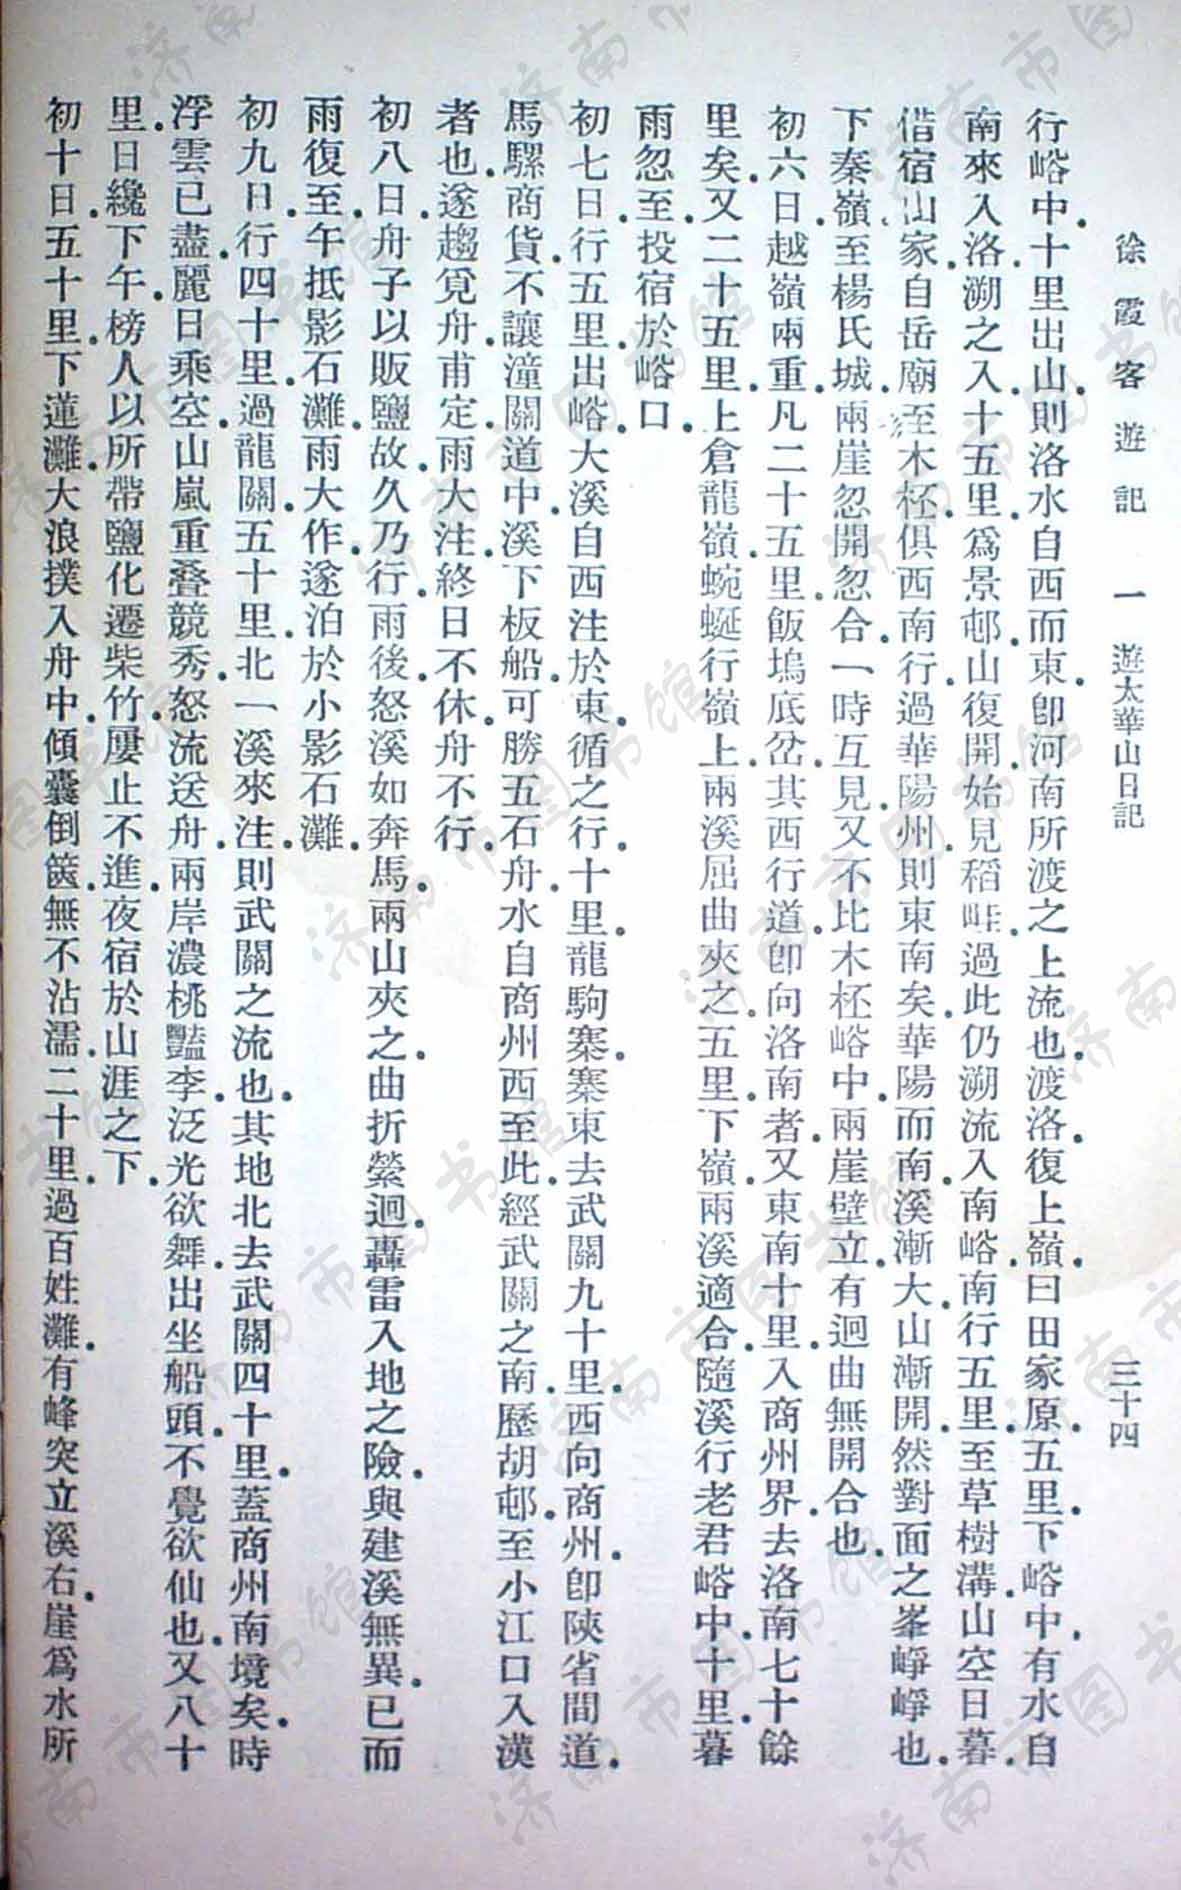 徐霞客遊記 一 遊太華山日記 三十四
行峪中.十里出山.則洛水自西而東.卽河南所渡之上流也.渡洛.復上嶺.曰田家原.五里.下峪中.有水自
南來入洛.溯之入.十五里.爲景邨.山復開.始見稻畦.過此仍溯流入南峪.南行五里.至草樹溝.山空日暮.
借宿山家.自岳廟至木柸.俱西南行.過華陽州.則東南矣.華陽而南.溪漸大.山漸開.然對面之峯崢崢也.
下秦嶺.至楊氏城.兩崖忽開忽合.一時互見.又不比木柸峪中.兩崖壁立.有迴曲無開合也.
初六日.越嶺兩重.凡二十五里.飯塢底岔.其西行道.卽向洛南者.又東南十里.入商州界.去洛南七十餘
里矣.又二十五里.上倉龍嶺.蜿蜒行嶺上.兩溪屈曲夾之.五里.下嶺.兩溪適合.隨溪行老君峪中.十里.暮
雨忽至.投宿於峪口.
初七日.行五里.出峪.大溪自西注於東.循之行.十里.龍駒寨.寨東去武關九十里.西向商州.卽陝省間道.
馬騾商貨.不讓潼關道中.溪下板船.可勝五石舟.水自商州西至此.經武關之南.歷胡邨.至小江口入漢
者也.遂趨覓舟.甫定.雨大注.終日不休.舟不行.
初八日.舟子以販鹽故.久乃行.雨後怒溪如奔馬.兩山夾之.曲折縈迴.轟雷入地之險.與建溪無異.已而
雨復至.午抵影石灘.雨大作.遂泊於小影石灘.
初九日.行四十里.過龍關.五十里.北一溪來注.則武關之流也.其地北去武關四十里.蓋商州南境矣.時
浮雲已盡.麗日乘空.山嵐重疊競秀.怒流送舟.兩岸濃桃豔李.泛光欲舞.出坐船頭.不覺欲仙也.又八十
里.日纔下午.榜人以所帶鹽化遷柴竹.屢止不進.夜宿於山涯之下.
初十日.五十里.下蓮灘.大浪撲入舟中.傾囊倒篋.無不沾濡.二十里.過百姓灘.有峰突立溪右.崖爲水所